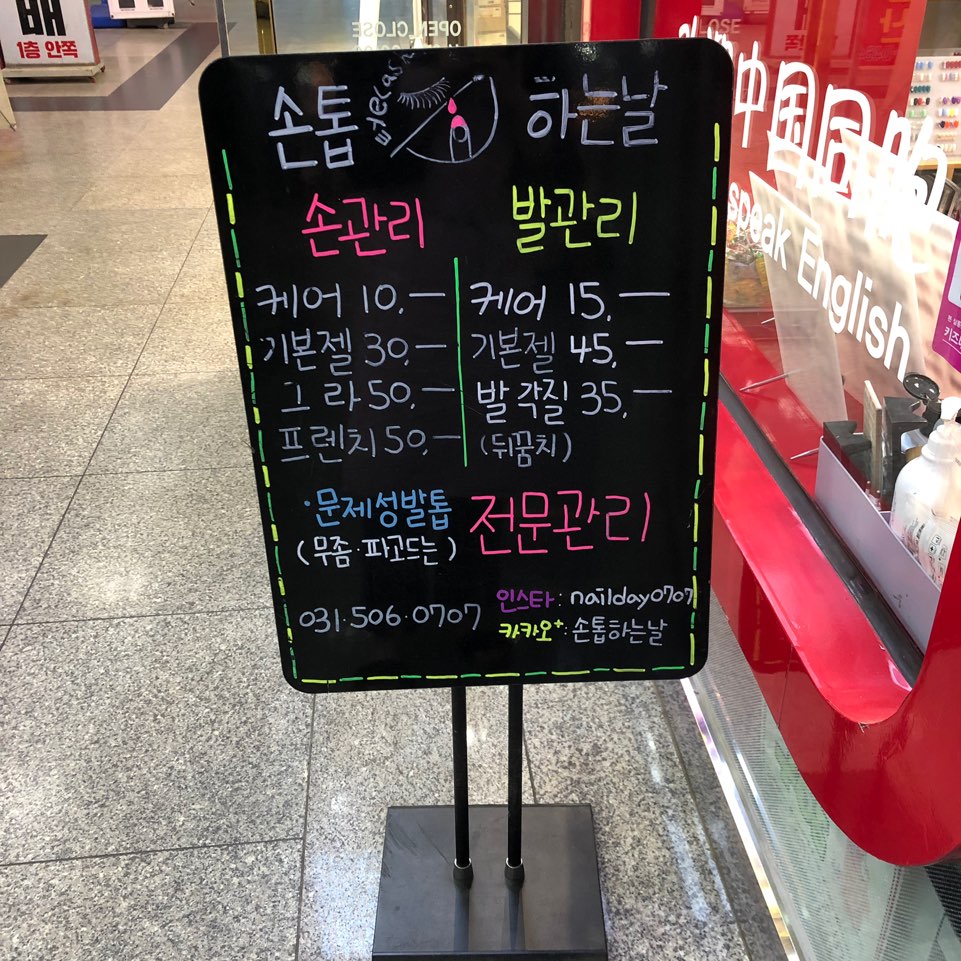 배
1층 안쪽
OPEN CLOSE
손톱 하는날
손관리
케어 10,—
기본젤 30,—
그라 50,—
프렌치 50,—
발관리
케어 15,—
기본젤 45,—
발각질 35,—
(뒤꿈치)
·문제성발톱
(무좀·파고드는)
전문관리
031·506·0707
인스타: nailday0707
카카오+: 손톱하는날
中国
speak English